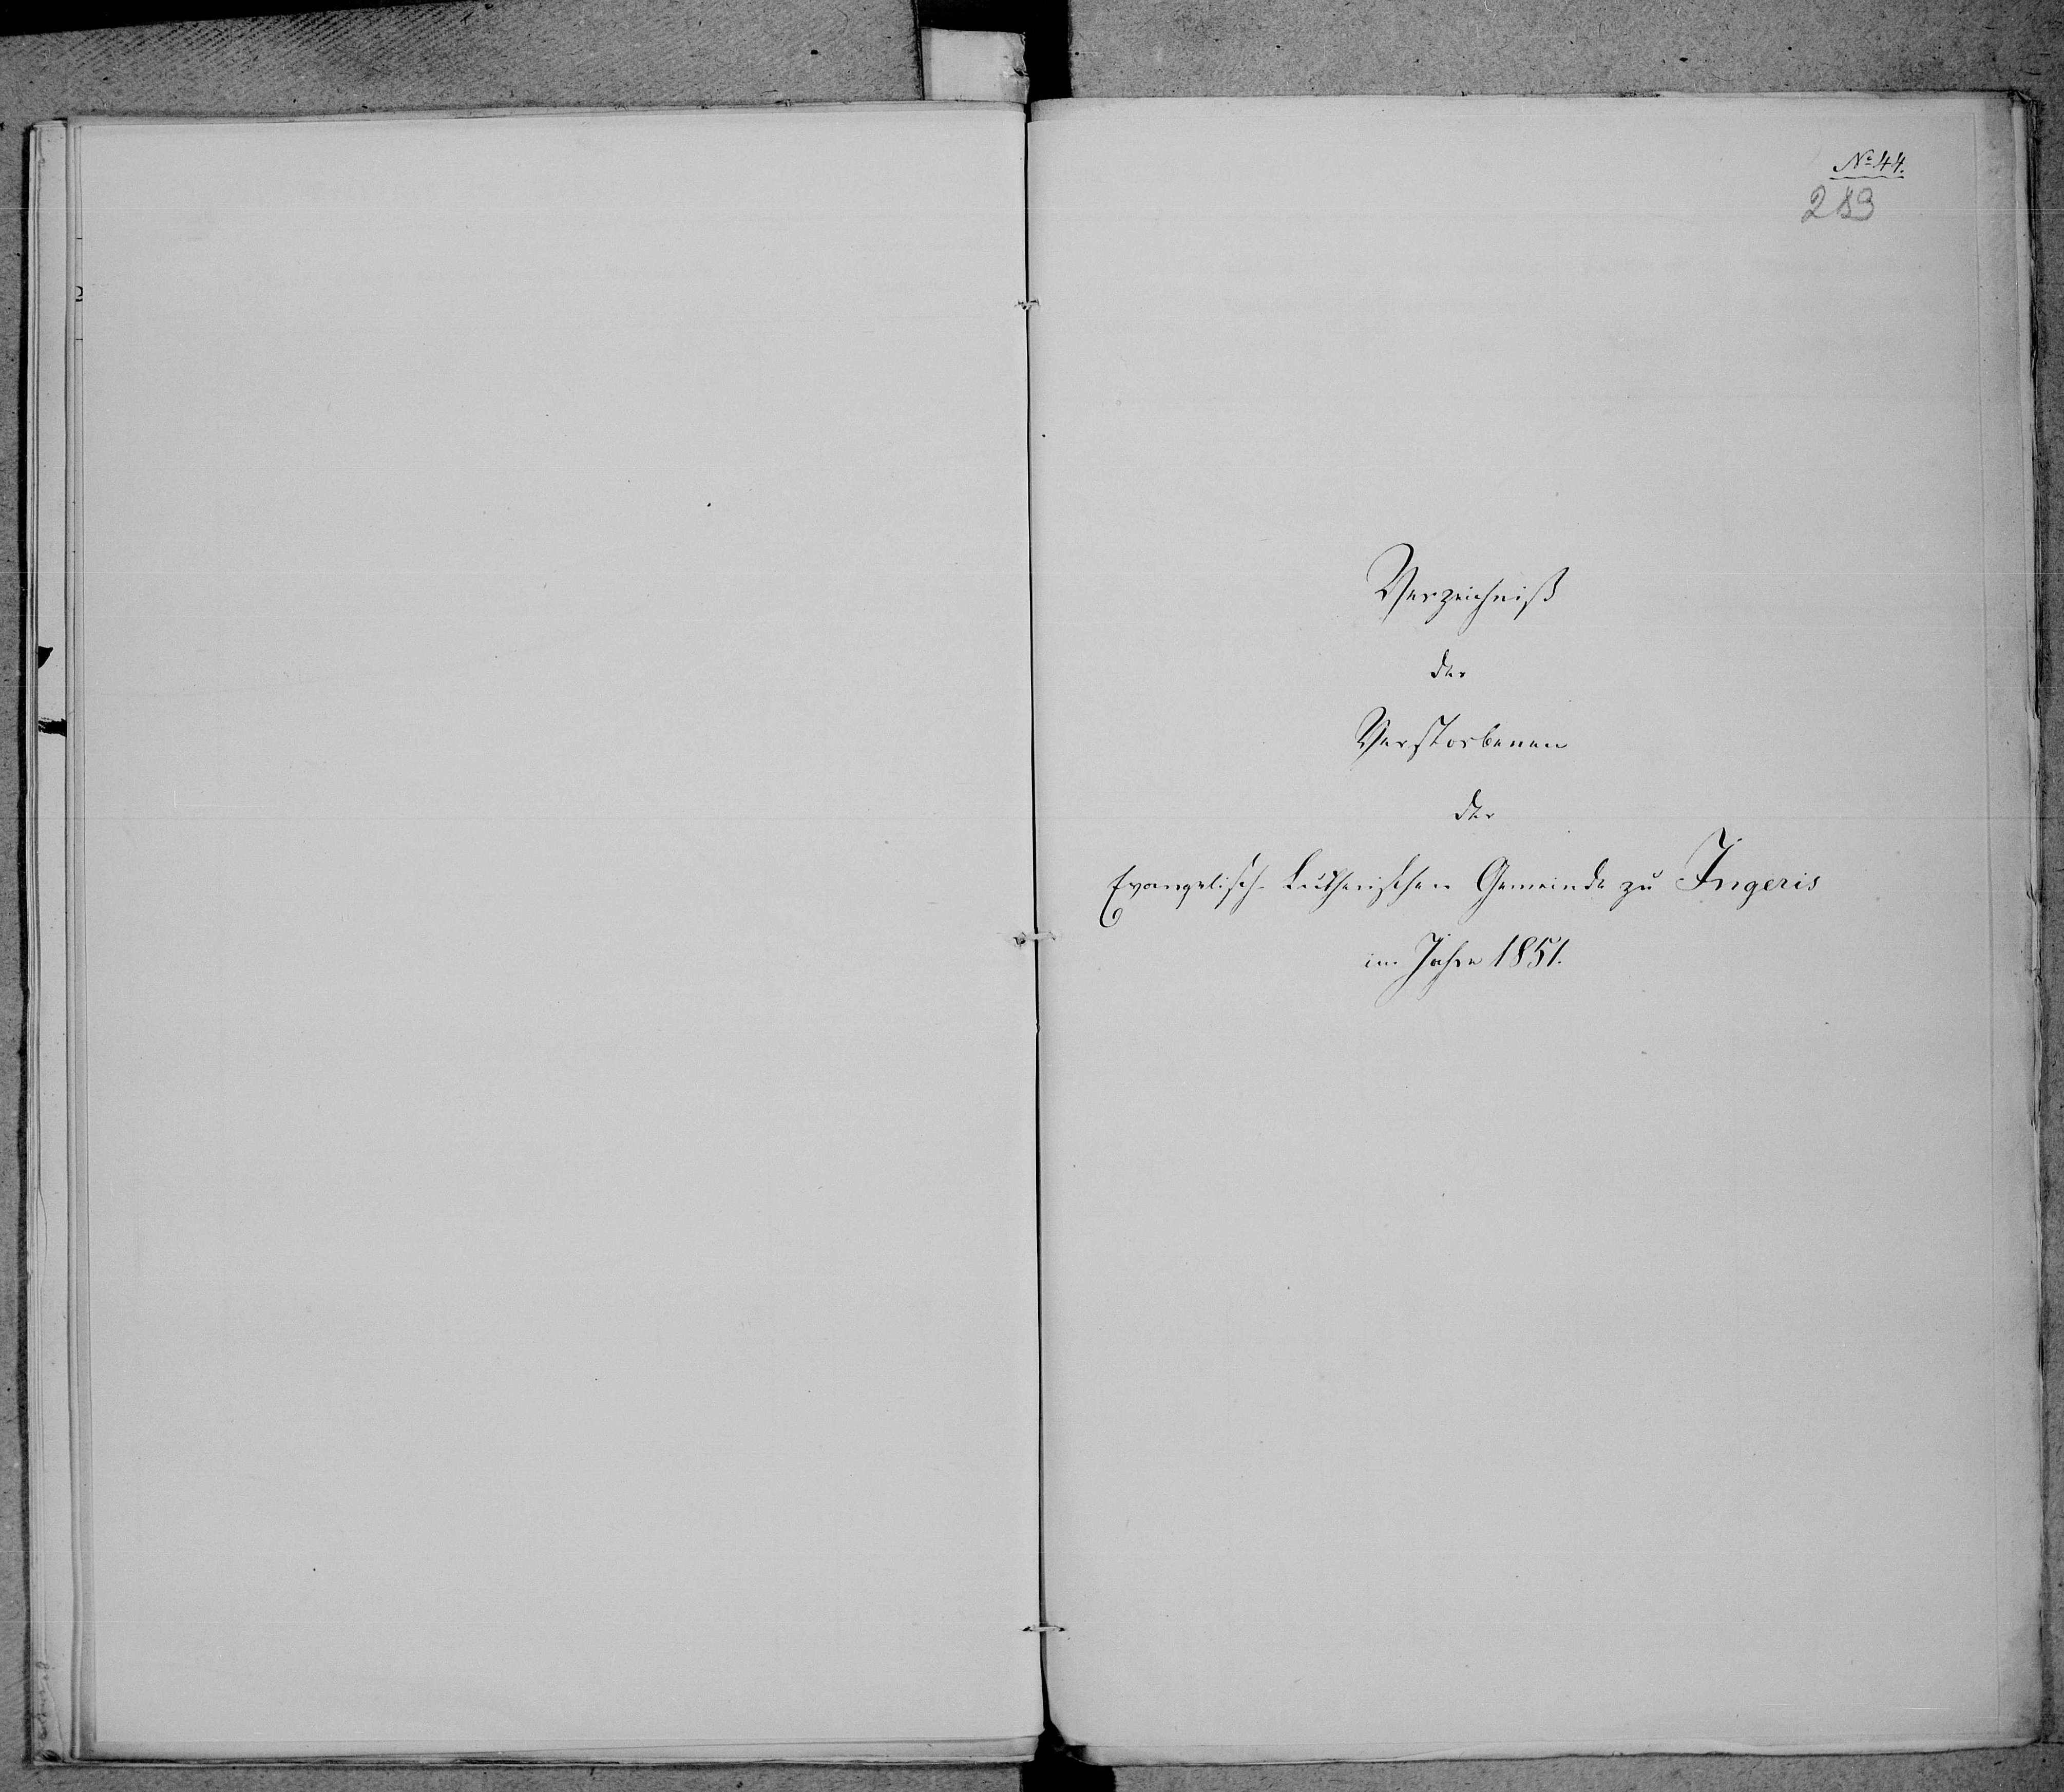 № 44.
283
Verzeichniß
der
Verstorbenen
der
Evangelisch-Lutherischen Gemeinde zu Ingeris
im Jahre 1851.